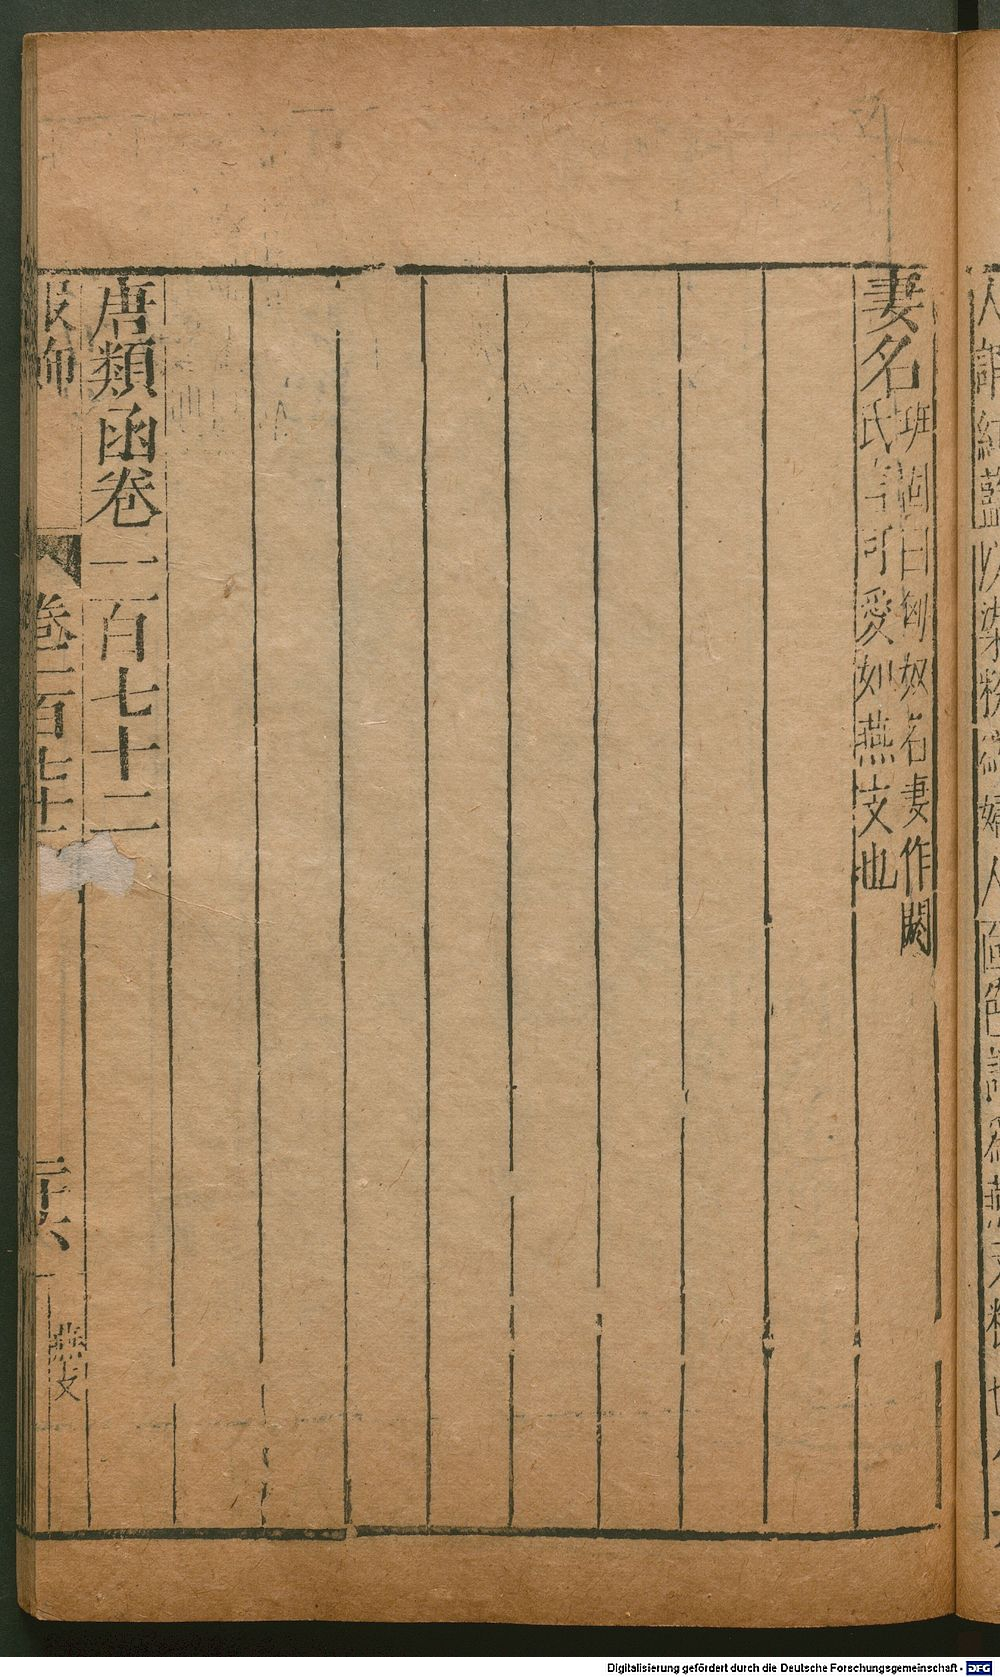 妻名
班固曰匈奴名妻作閼
氏言可愛如燕支也
唐類函卷一百七十二
服飾
卷一百七十二
二十六
燕支
Digitalisierung gefördert durch die Deutsche Forschungsgemeinschaft - DFG